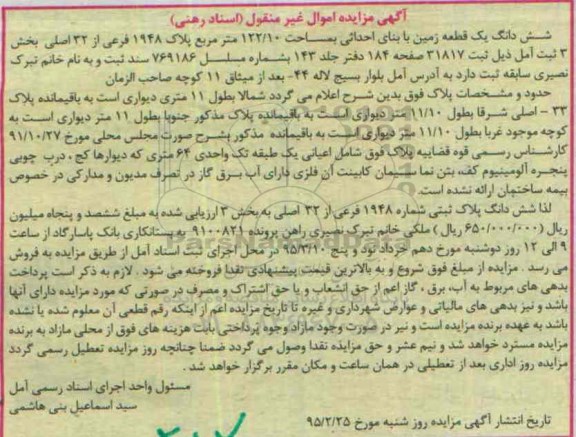 آگهی مزایده اموال غیر منقول (اسناد رهنی)
شش دانگ یک قطعه زمین با بنای احداثی بمساحت ۱۲۲/۱۰ متر مربع پلاک ۱۹۴۸ فرعی از ۳۲ اصلی بخش
۳ ثبت آمل ذیل ثبت ۳۱۸۱۷ صفحه ۱۸۴ دفتر جلد ۱۴۳ بشماره مسلسل ۷۶۹۱۸۶ سند ثبت و به نام خانم تبرک
نصیری سابقه ثبت دارد به آدرس آمل بلوار بسیج لاله ۴۴- بعد از میثاق ۱۱ کوچه صاحب الزمان
حدود و مشخصات پلاک فوق بدین شرح اعلام می گردد شمالا بطول ۱۱ متری دیواری است به باقیمانده پلاک
۳۳ – اصلی شرقا بطول ۱۱/۱۰ متر دیواری است به باقیمانده پلاک مذکور جنوبا بطول ۱۱ متر دیواری است به
کوچه موجود غربا بطول ۱۱/۱۰ متر دیواری است به باقیمانده مذکور بشرح صورت مجلس محلی مورخ ۹۱/۱۰/۲۷
کارشناس رسمی قوه قضاییه پلاک فوق شامل اعیانی یک طبقه تک واحدی ۶۴ متری که دیوارها گچ ، درب چوبی
پنجره آلومینیوم کف، بتن نما سیمان کابینت آن فلزی دارای آب برق گاز در تصرف مدیون و مدارکی در خصوص
بیمه ساختمان ارائه نشده است.
لذا شش دانگ پلاک ثبتی شماره ۱۹۴۸ فرعی از ۳۲ اصلی به بخش ۳ ارزیابی شده به مبلغ ششصد و پنجاه میلیون
ریال (۶۵۰/۰۰۰/۰۰۰ ریال ) ملکی خانم تبرک نصیری راهن پرونده ۹۱۰۰۸۲۱ به بستانکاری بانک پاسارگاد از ساعت
۹ الی ۱۲ روز دوشنبه مورخ دهم خرداد نود و پنج ۹۵/۳/۱۰ در محل اجرای ثبت اسناد آمل از طریق مزایده به فروش
می رسد . مزایده از مبلغ فوق شروع و به بالاترین قیمت پیشنهادی نقدا فروخته می شود . لازم به ذکر است پرداخت
بدهی های مربوط به آب، برق ، گاز اعم از حق انشعاب و یا حق اشتراک و مصرف در صورتی که مورد مزایده دارای آنها
باشد و نیز بدهی های مالیاتی و عوارض شهرداری و غیره تا تاریخ مزایده اعم از اینکه رقم قطعی آن معلوم شده یا نشده
باشد به عهده برنده مزایده است و نیز در صورت وجود مازاد وجوه پرداختی بابت هزینه های فوق از محلی مازاد به برنده
مزایده مسترد خواهد شد و نیم عشر و حق مزایده نقدا وصول می گردد ضمنا چنانچه روز مزایده تعطیل رسمی گردد
مزایده روز اداری بعد از تعطیلی در همان ساعت و مکان مقرر برگزار خواهد شد .
مسئول واحد اجرای اسناد رسمی آمل
سید اسماعیل بنی هاشمی
تاریخ انتشار آگهی مزایده روز شنبه مورخ ۹۵/۲/۲۵